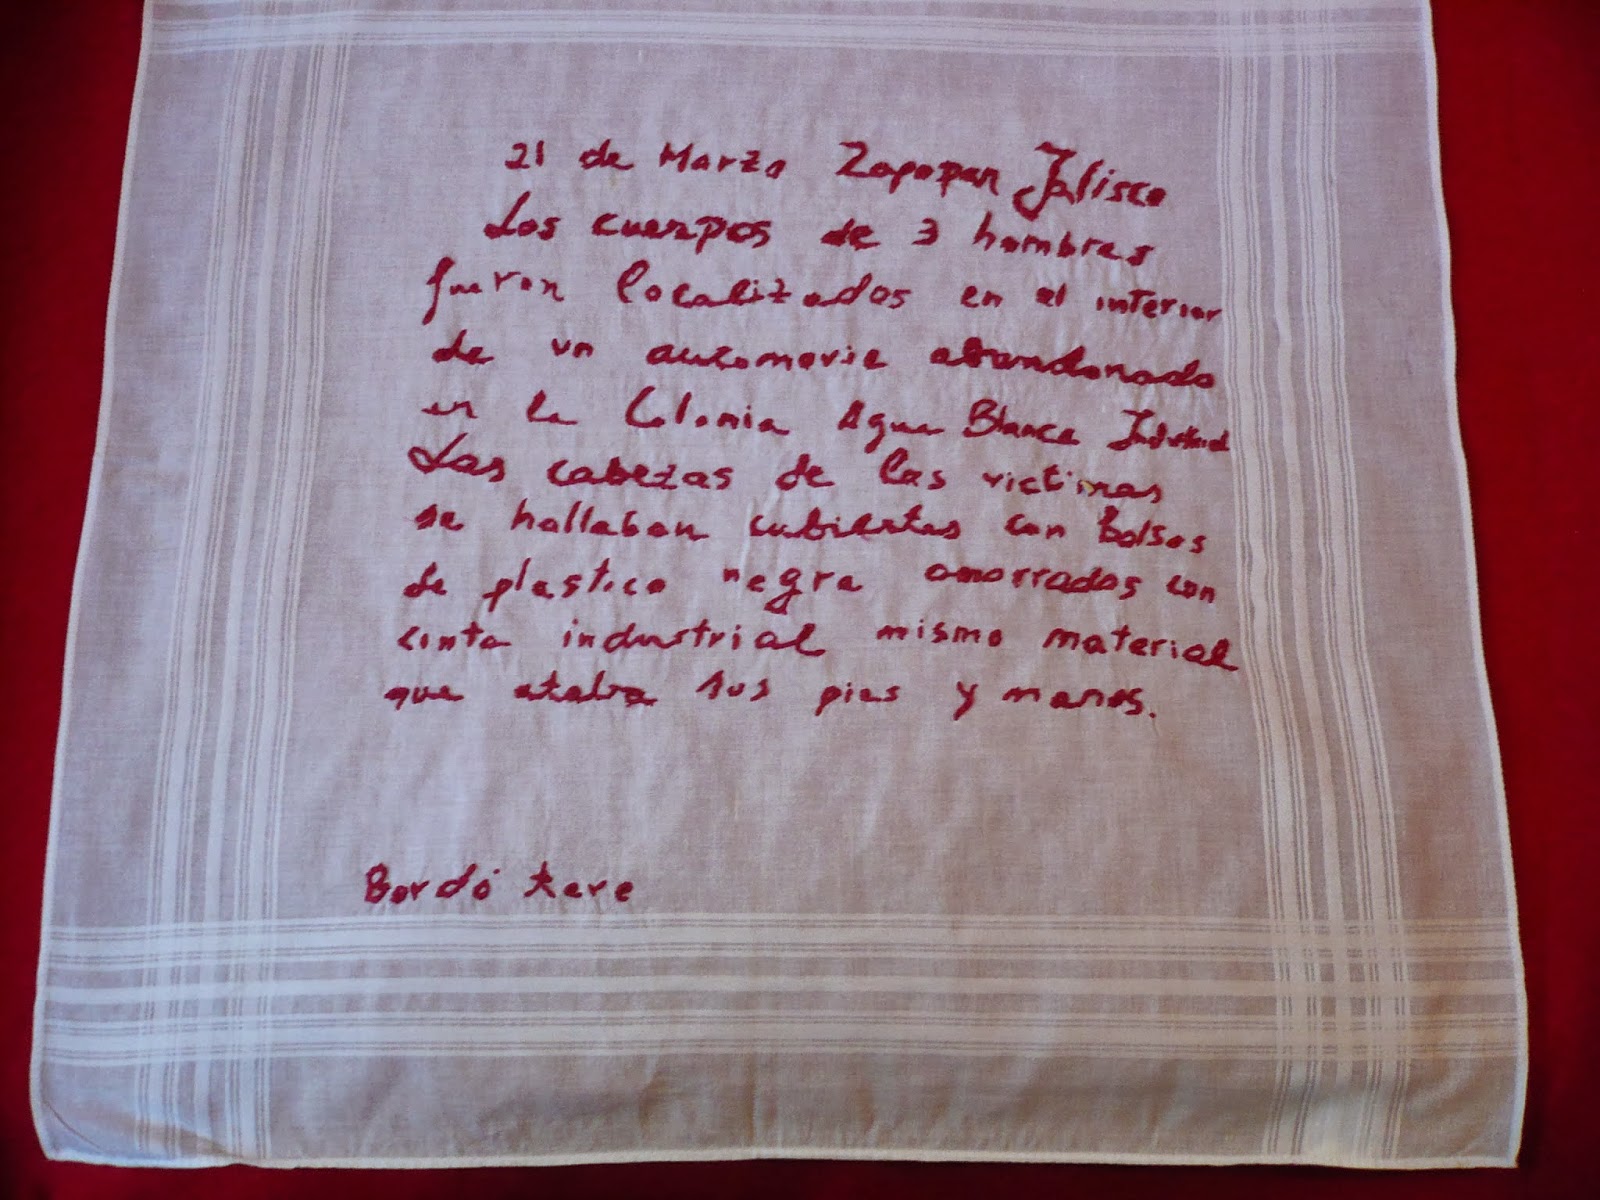 21 de Marzo Zapopan Jalisco
Los cuerpos de 3 hombres
fueron localizados en el interior
de un automovil abandonado
en la Colonia Agua Blanca Industrial
Las cabezas de las victimas
se hallaban cubiertas con bolsas
de plastico negra amarradas con
cinta industrial mismo material
que ataba sus pies y manos.
Bordó tere